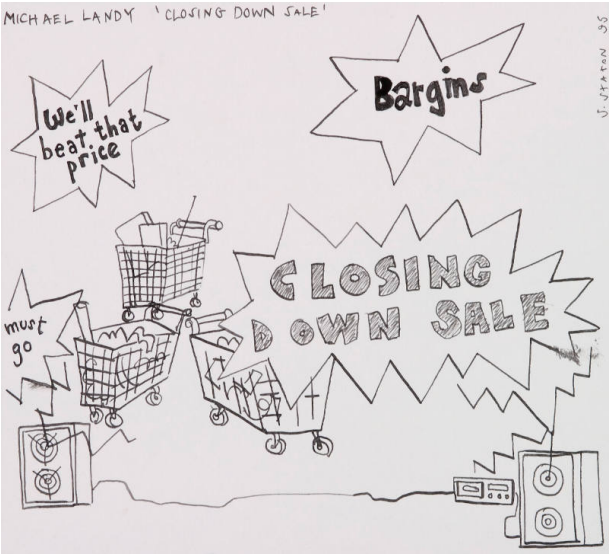 MICHAEL LANDY 'CLOSING DOWN SALE'
J. STATON 95
We'll
beat that
price
Bargins
CLOSING
DOWN SALE
must
go